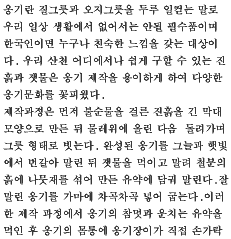 옹기란 질그릇과 오지그릇을 두루 일컫는 말로
우리 일상 생활에서 없어서는 안될 필수품이며
한국인이면 누구나 친숙한 느낌을 갖는 대상이
다. 우리 산천 어디에서나 쉽게 구할 수 있는 진
흙과 잿물은 옹기 제작을 용이하게 하여 다양한
옹기문화를 꽃피웠다.
제작과정은 먼저 불순물을 걸른 진흙을 긴 막대
모양으로 만든 뒤 물레위에 올린 다음 돌려가며
그릇 형태로 빚는다. 완성된 옹기를 그늘과 햇빛
에서 번갈아 말린 뒤 잿물을 먹이고 말려 철분의
흙에 나뭇재를 섞어 만든 유약에 담궈 말린다. 잘
말린 옹기를 가마에 차곡차곡 넣어 굽는다. 이러
한 제작 과정에서 옹기의 참멋과 운치는 유약을
먹인 후 옹기의 몸통에 옹기장이가 직접 손가락